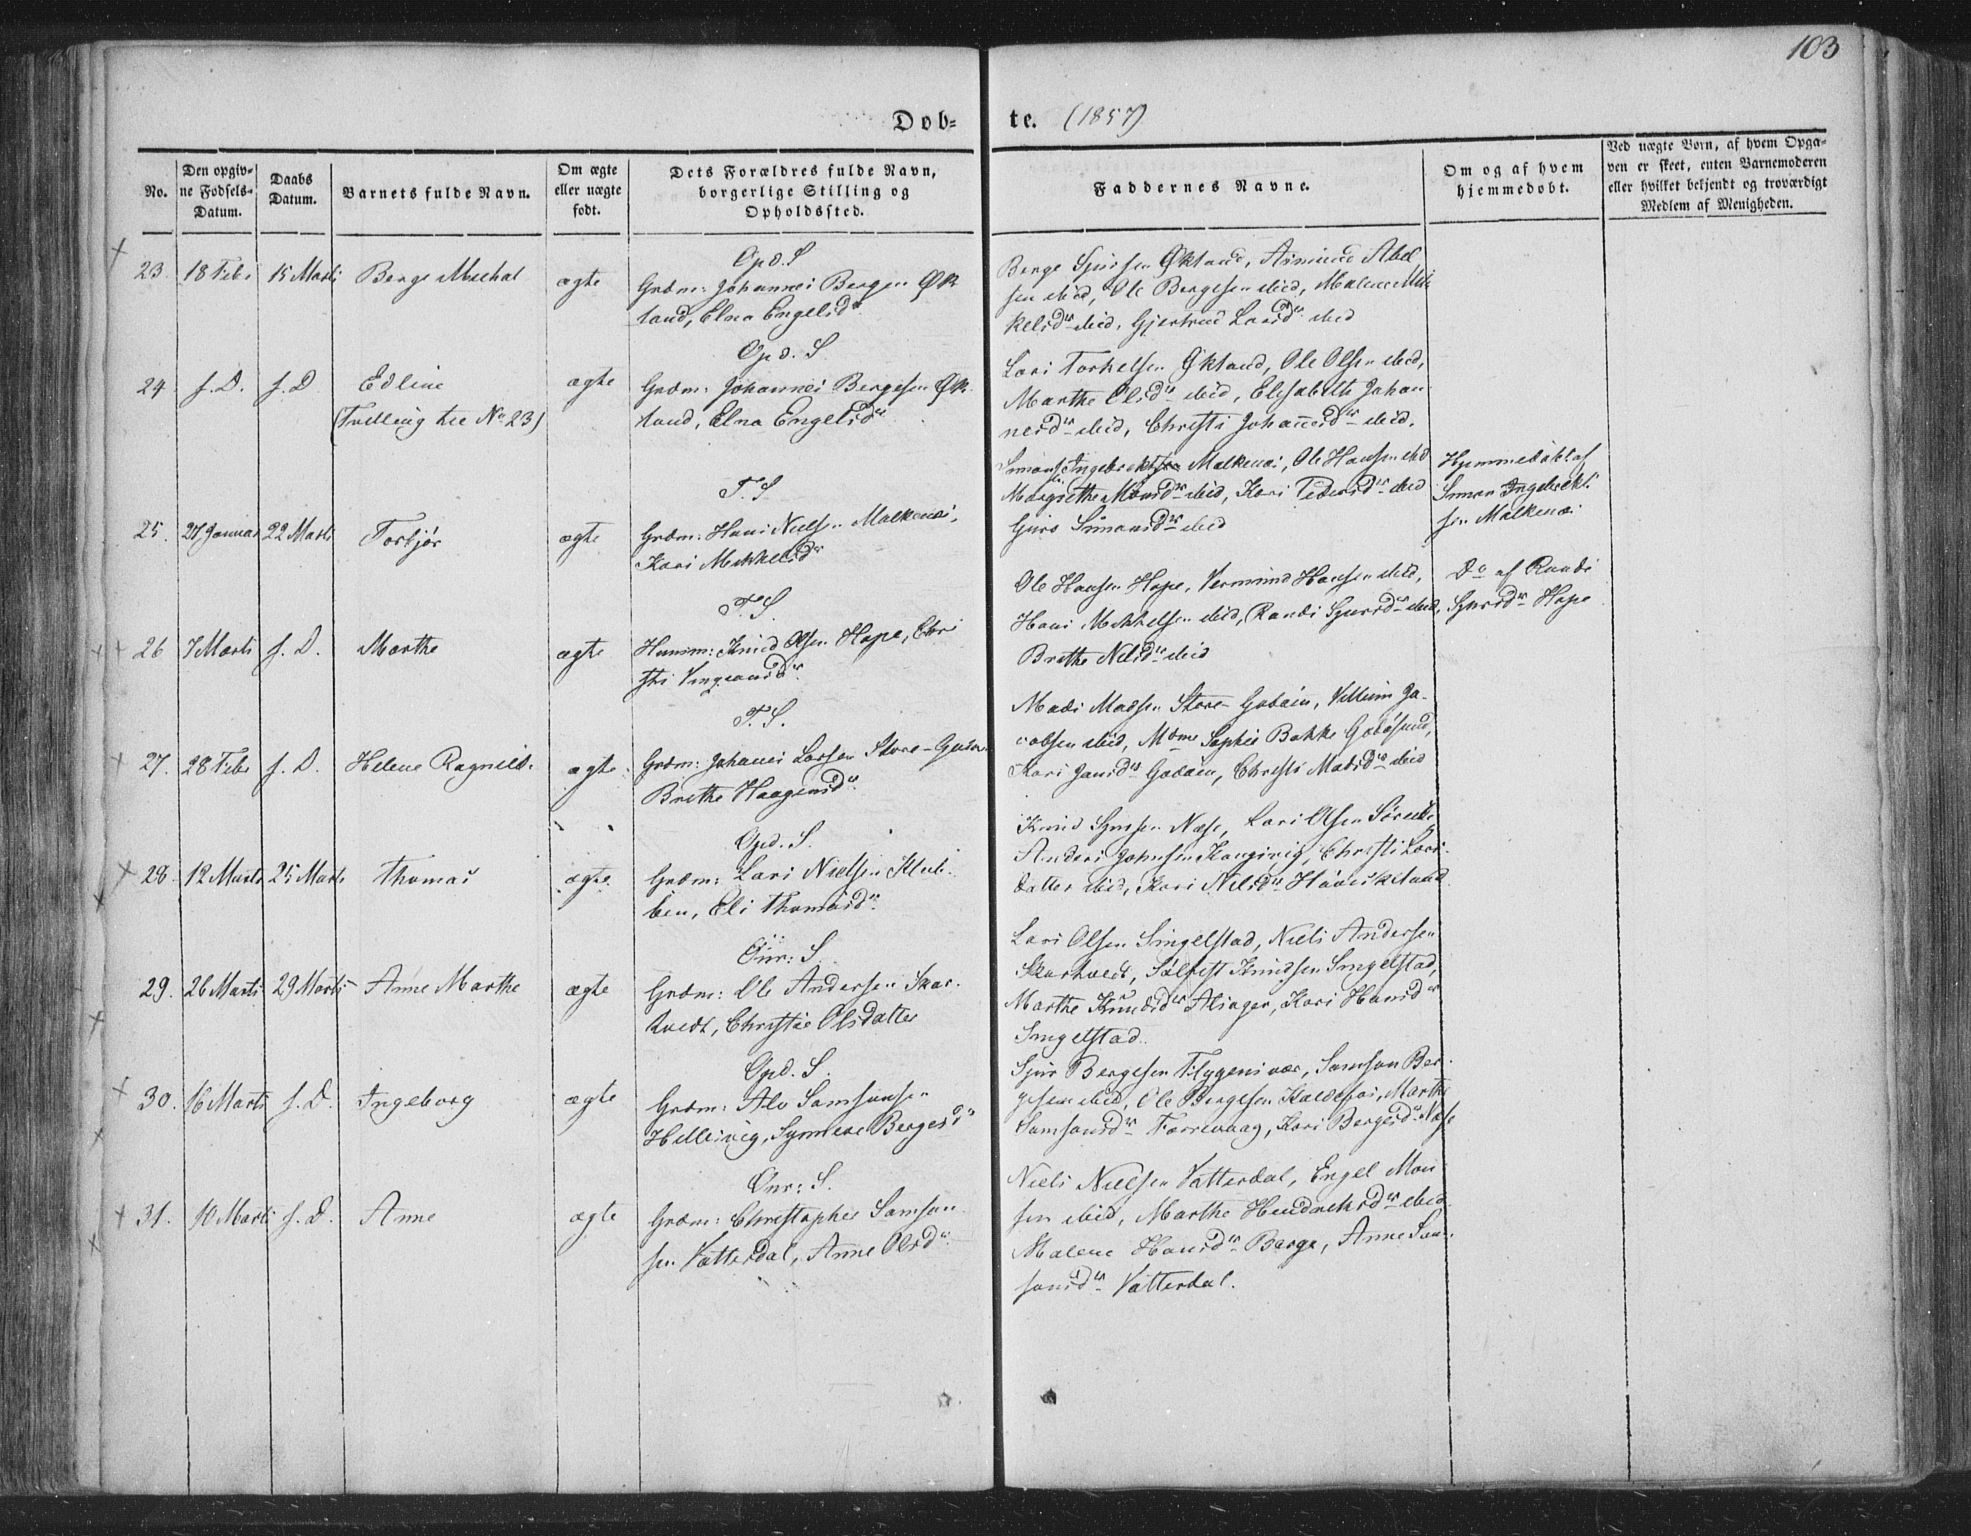 103
Døb= te. (1857)
No.
Den opgiv-
ne Fødsels-
Datum.
Daabs
Datum.
Barnets fulde Navn.
Om ægte
eller uægte
født.
Dets Forældres fulde Navn,
borgerlige Stilling og
Opholdssted.
Faddernes Navne.
Om og af hvem
hjemmedøbt.
Ved uægte Børn, af hvem Opga-
ven er skeet, enten Barnemoderen
eller hvilket bekjendt og troværdigt
Medlem af Menigheden.
23. 18 Febr 15 Marts Berge Mechal ægte
Opd. S
Grdm: Johannes Bergesen Øk
land, Elna Engelsdr
Berge Sjursen Økland, Asmund Abel
sen ibid, Ole Bergesen ibid, Malene Mik
kelsdr ibid, Gjertrud Larsdr ibid
24 s. D. s. D Edline ægte
(Tvilling til No 23)
Opd. S.
Grdm: Johannes Bergesen Øk
land, Elna Engelsdr
Lars Torkelsen Økland, Ole Olsen ibid,
Marthe Olsdr ibid, Elisabeth Johan
nesdr ibid, Christi Johannesdr ibid.
25. 27 Januar 22 Marts Torbjør ægte
T. S
Grdm: Hans Nielsen Malkenes,
Kari Mikkelsdr
Simon Ingebrektsen Malkenes, Ole Hansen ibid
Margrethe Monsdr ibid, Kari Pedersdr ibid
Guro Simonsdr ibid
Hjemmedøbt af
Simon Ingebrekt
sen Malkenes
26 7 Marts s. D. Marthe ægte
T. S.
Husm: Knud Olsen Hope, Chri
sti Vermundsdr
Ole Hansen Hope, Vermund Hansen ibid,
Hans Mikkelsen ibid, Randi Sjursdr ibid,
Brethe Nilsdr ibid
Do af Randi
Sjursdr Hope
27. 28 Febr s. D. Helene Ragnild. ægte
T. S.
Grdm: Johannes Larsen Store-Godøen
Brithe Haagensdr
Mads Madsen Store-Godøen, Villum Ja-
cobsen ibid, Mdme Sophie Bakke Godøsund,
Kari Jansdr Godøen, Christi Madsdr ibid
28. 12 Marts 25 Marts Thomas ægte
Opd. S.
Grdm: Lars Nielsen Kleb-
ben, Eli Thomasdr
Knud Sjursen Næse, Lars Olsen
Anders Johnsen Kongsvig, Christi Lars-
datter ibid, Kari Nilsdr
29. 26 Marts 29 Marts Anne Marthe ægte
Onr: S.
Grdm: Ole Andersen Skar-
tvedt, Christie Olsdatter
Lars Olsen Singelstad, Niels Andersen
Skartvedt, Sølfest Knudsen Singelstad,
Marthe Knudsdr Alsager, Kari Hansdr
Singelstad.
30. 16 Marts s. D. Ingeborg ægte
Opd. S.
Grdm: Alv Samsonsen
Hellesvig, Synneve Bergesdr
Sjur Bergesen Flygensvær, Samson Ber-
gesen ibid, Ole Bergesen Kaldefos, Marthe
Samsonsdr Færrevaag, Kari Bergesdr Næse
31. 10 Marts s. D. Anne ægte
Onr: S.
Grdm: Christopher Samson
sen Vatterdal, Anne Olsdr
Niels Nielsen Vatterdal, Engel Mon
sen ibid, Marthe Hendriksdr ibid
Malene Hansdr Berge, Anne Sam-
sonsdr Vatterdal.